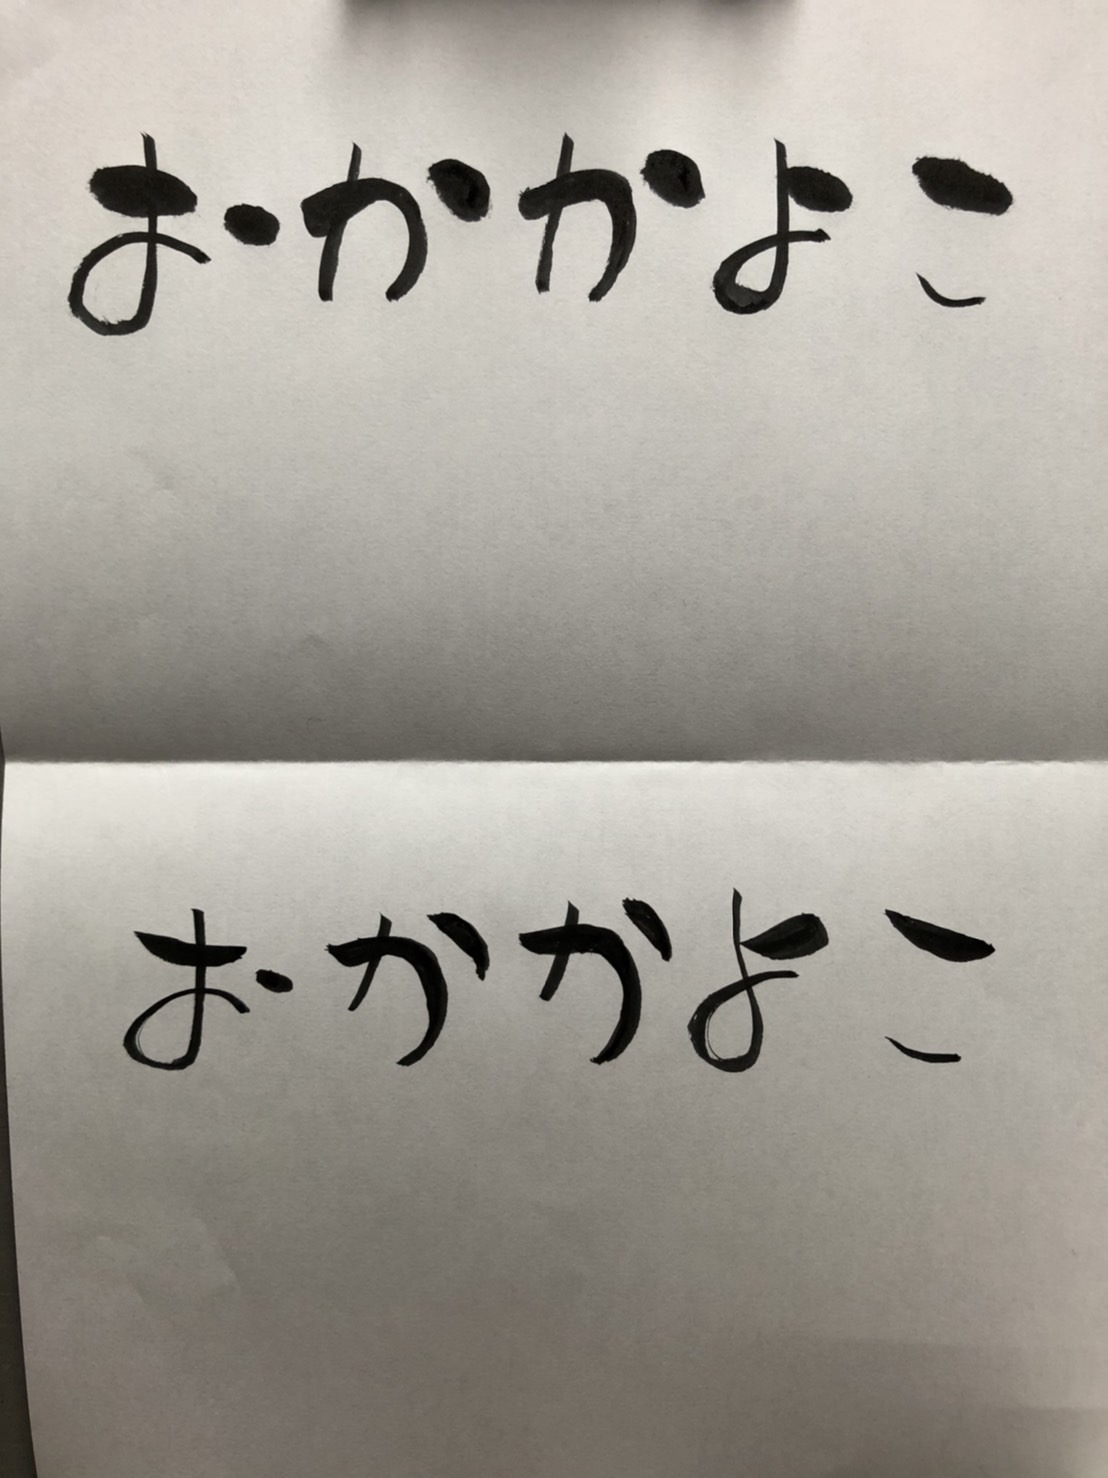 おかかよこ
おかかよこ